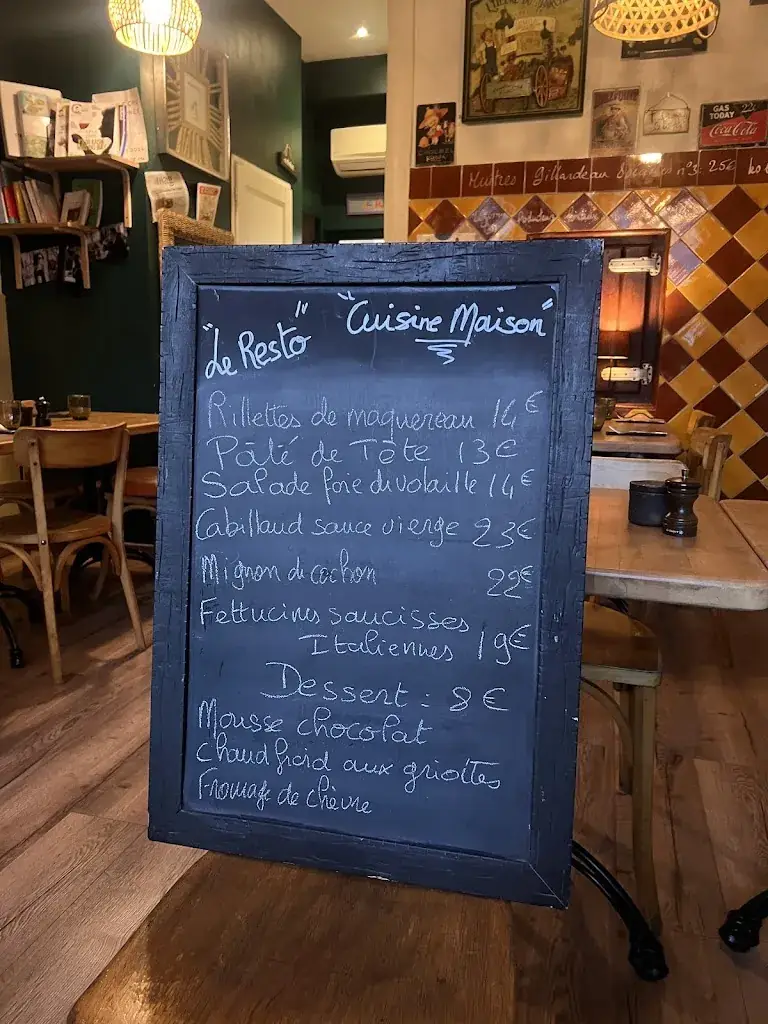 Huitres Gillardeau Spéciales n°3. 25€
GAS
TODAY 22¢
Coca-Cola
"Le Resto" "Cuisine Maison"
Rillettes de maquereau 14€
Pâté de Tête 13€
Salade foie de volaille 14€
Cabillaud sauce vierge 23€
Mignon de cochon 22€
Fettucines saucisses
Italiennes 19€
Dessert : 8€
Mousse chocolat
chaud froid aux griottes
Fromage de chèvre